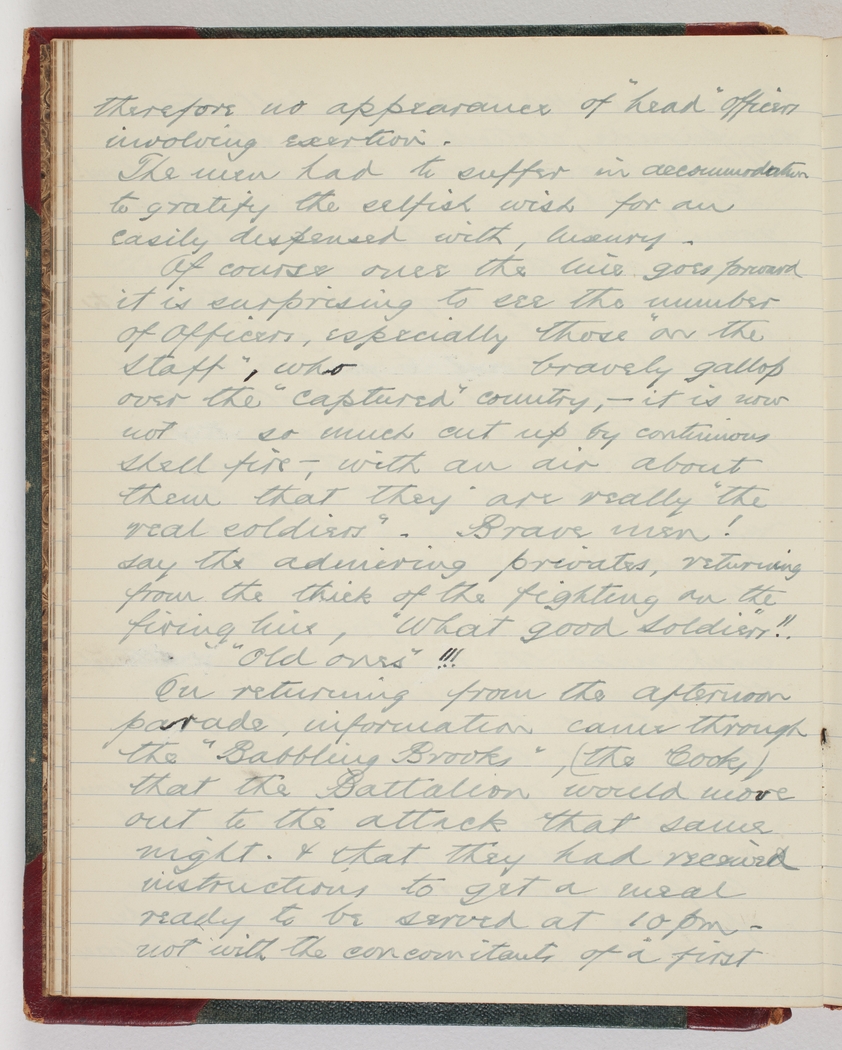 therefore no appearance of "head" officers
involving exertion.
The men had to suffer in accommodation
to gratify the selfish wish for an
easily dispensed with, luxury.
Of course once the line goes forward
it is surprising to see the number
of Officers, especially those "on the
Staff", who bravely gallop
over the "captured" country, - it is now
not so much cut up by continuous
shell fire -, with an air about
them that they are really "the
real soldiers". Brave men!
say the admiring privates, returning
from the thick of the fighting on the
firing line, "What good soldiers"!!.
" "Old ones" !!!
On returning from the afternoon
parade, information came through
the "Babbling Brooks", (the Cooks)
that the Battalion would move
out to the attack that same
night. & that they had received
instructions to get a meal
ready to be served at 10 pm -
not with the concomitants of a first